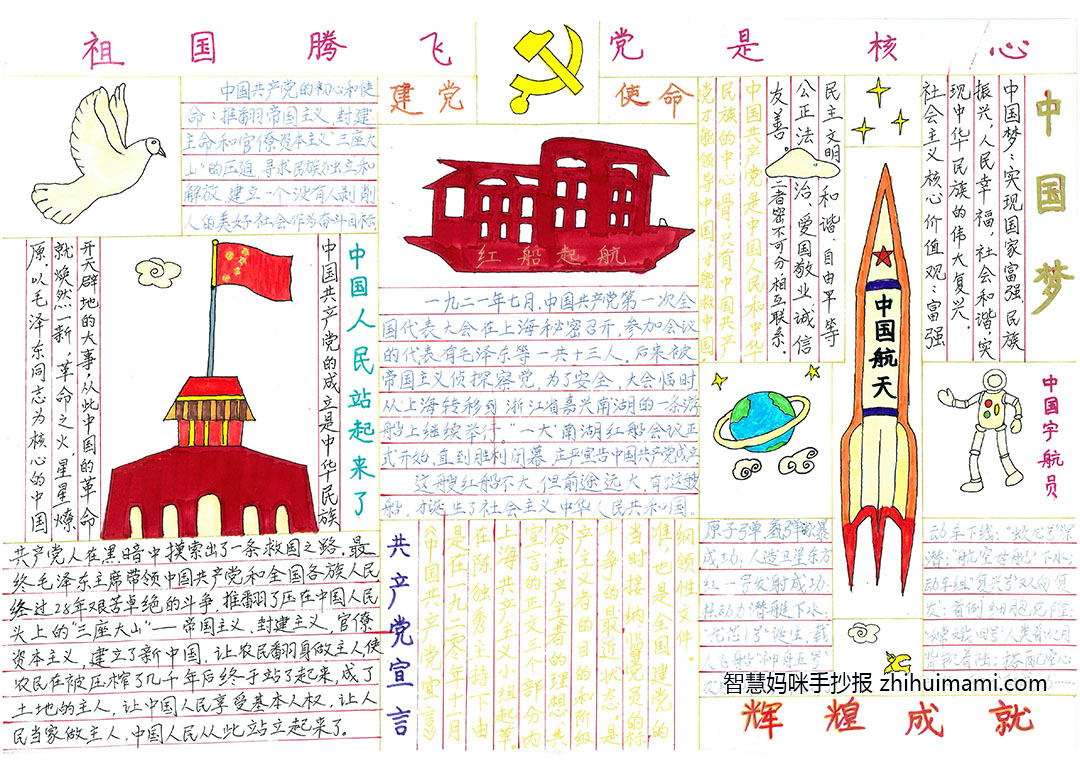 祖国腾飞 党是核心
建党 使命
中国共产党的初心和使
命:推翻帝国主义,封建
主命和官僚资本主义"三座大
山"的压迫,寻求民族独立和
解放,建立一个没有人剥削
人的美好社会作为奋斗目标.
中国人民站起来了
中国共产党的成立是中华民族
开天辟地的大事,从此中国的革命
就焕然一新,革命之火,星星燎
原.以毛泽东同志为核心的中国
共产党人在黑暗中摸索出了一条救国之路.最
终毛泽东主席带领中国共产党和全国各族人民
经过28年艰苦卓绝的斗争,推翻了压在中国人民
头上的"三座大山"——帝国主义,封建主义,官僚
资本主义,建立了新中国,让农民翻身做主人使
农民在被压榨了几千年后终于站了起来,成了
土地的主人,让中国人民享受基本人权,让人
民当家做主人,中国人民从此站立起来了.
红船起航
一九二一年七月,中国共产党第一次全
国代表大会在上海秘密召开,参加会议
的代表有毛泽东等一共十三人,后来被
帝国主义侦探察觉,为了安全,大会临时
从上海转移到浙江省嘉兴南湖的一条游
船上继续举行."一大"南湖红船会议正
式开始,直到胜利闭幕,庄严宣告中国共产党成立
这艘红船不大,但前途远大,有了这艘
船,才诞生了社会主义中华人民共和国.
中国共产党是中国人民和中华
民族的中心骨,只有中国共产
党才能领导中国,才能救中国.
共产党宣言
《中国共产党宣言》
是在一九二零年十月
在陈独秀主持下由
上海共产主义小组起草.
宣言的正文三个部分内
共产主义者的理想共
产主义者的目的和阶级
斗争的最近状态.是
当时接纳党员的标
准,也是全国建党的
纲领性文件.
中国梦
中国梦:实现国家富强,民族
振兴,人民幸福,社会和谐,实
现中华民族的伟大复兴.
社会主义核心价值观:富强
民主文明 和谐,自由平等
公正法治,爱国敬业诚信
友善。二者密不可分相互联系.
中国航天
中国宇航员
成功.人造卫星东方
红一号发射成功.
核动力潜艇下水.
人飞船"神舟五号"
辉煌成就
智慧妈咪手抄报 zhihuimami.com